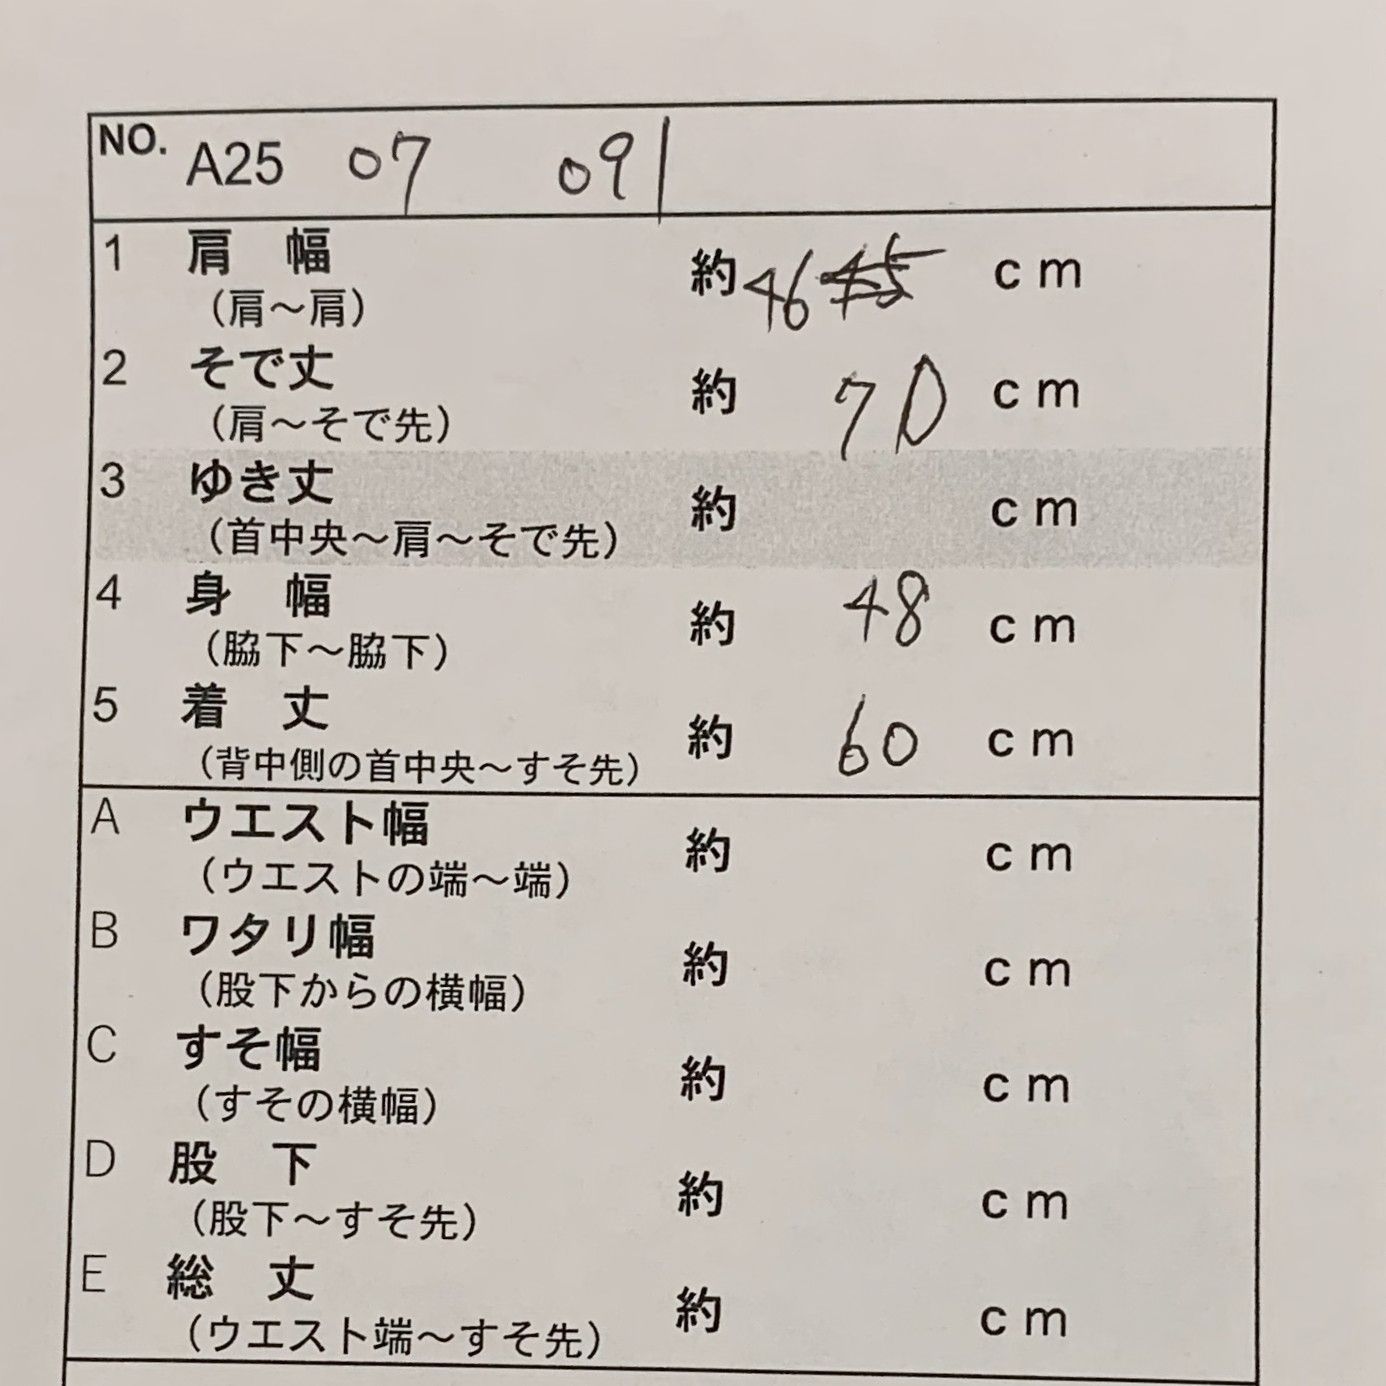 NO. A25 07 091
1 肩 幅 約 46 45 cm
(肩～肩)
2 そで丈 約 70 cm
(肩～そで先)
3 ゆき丈 約 cm
(首中央～肩～そで先)
4 身 幅 約 48 cm
(脇下～脇下)
5 着 丈 約 60 cm
(背中側の首中央～すそ先)
A ウエスト幅 約 cm
(ウエストの端～端)
B ワタリ幅 約 cm
(股下からの横幅)
C すそ幅 約 cm
(すその横幅)
D 股 下 約 cm
(股下～すそ先)
E 総 丈 約 cm
(ウエスト端～すそ先)